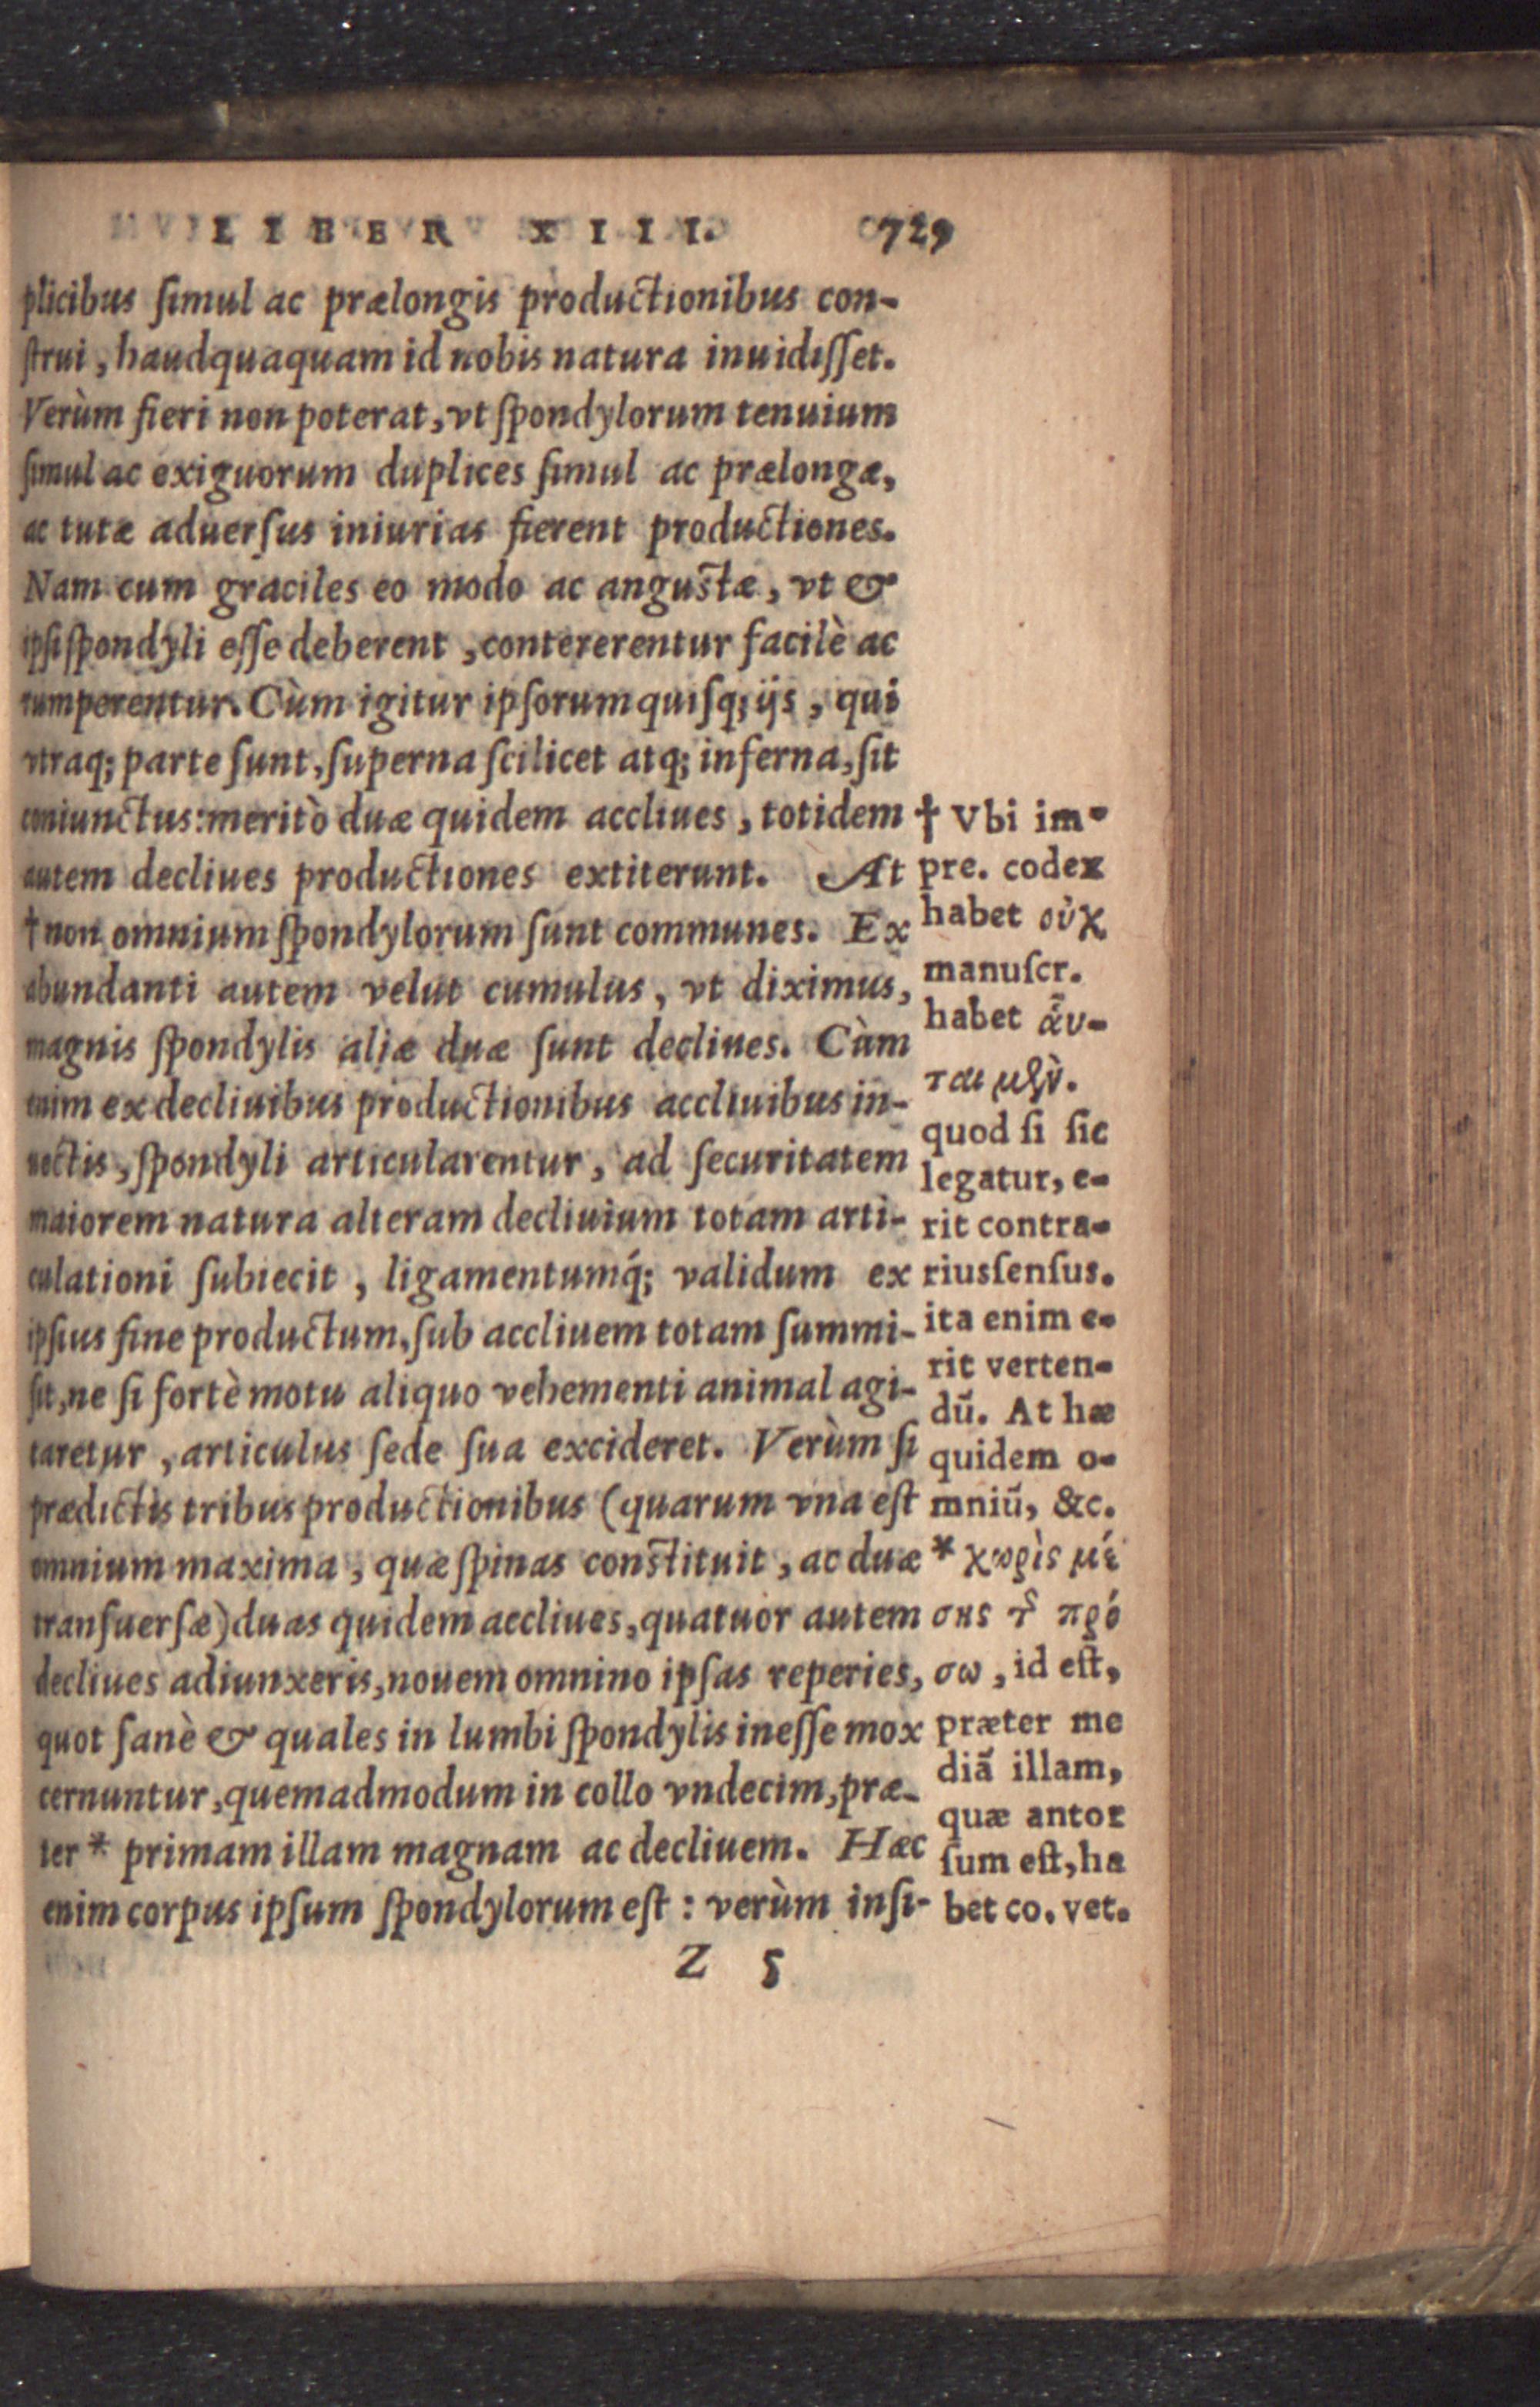 LIBER XIII. 729
plicibus ſimul ac prælongis productionibus con-
ſtrui, haudquaquam id nobis natura inuidiſſet.
Verùm fieri non poterat, vt ſpondylorum tenuium
ſimul ac exiguorum duplices ſimul ac prælongæ,
ac tutæ aduerſus iniurias fierent productiones.
Nam cum graciles eo modo ac anguſtæ, vt &
ipſi ſpondyli eſſe deberent, contererentur facilè ac
rumperentur. Cùm igitur ipſorum quiſq; ijs, qui
vtraq; parte ſunt, ſuperna ſcilicet atq; inferna, ſit
coniunctus: meritò duæ quidem accliues, totidem
autem decliues productiones extiterunt. At
† non omnium ſpondylorum ſunt communes. Ex
abundanti autem velut cumulus, vt diximus,
magnis ſpondylis aliæ duæ ſunt decliues. Cùm
enim ex decliuibus productionibus accliuibus in-
uectis, ſpondyli articularentur, ad ſecuritatem
maiorem natura alteram decliuium totam arti-
culationi ſubiecit, ligamentumq́; validum ex
ipſius fine productum, ſub accliuem totam ſummi-
ſit, ne ſi fortè motu aliquo vehementi animal agi-
taretur, articulus ſede ſua excideret. Verùm ſi
prædictis tribus productionibus (quarum vna eſt
omnium maxima, quæ ſpinas conſtituit, ac duæ
tranſuerſæ) duas quidem accliues, quatuor autem
decliues adiunxeris, nouem omnino ipſas reperies,
quot ſanè & quales in lumbi ſpondylis ineſſe mox
cernuntur, quemadmodum in collo vndecim, præ-
ter * primam illam magnam ac decliuem. Hæc
enim corpus ipſum ſpondylorum eſt: verùm inſi-
Z 5
† Vbi im-
pre. codex
habet οὐχ
manuſcr.
habet αὗ-
ται μὲν.
quod ſi ſic
legatur, e-
rit contra-
rius ſenſus.
ita enim e-
rit verten-
dū. At hæ
quidem o-
mniū, &c.
* χωρὶς μέ
σης τ̂ πρό
σω, id eſt,
præter me
diā illam,
quæ antor
ſum eſt, ha
bet co. vet.